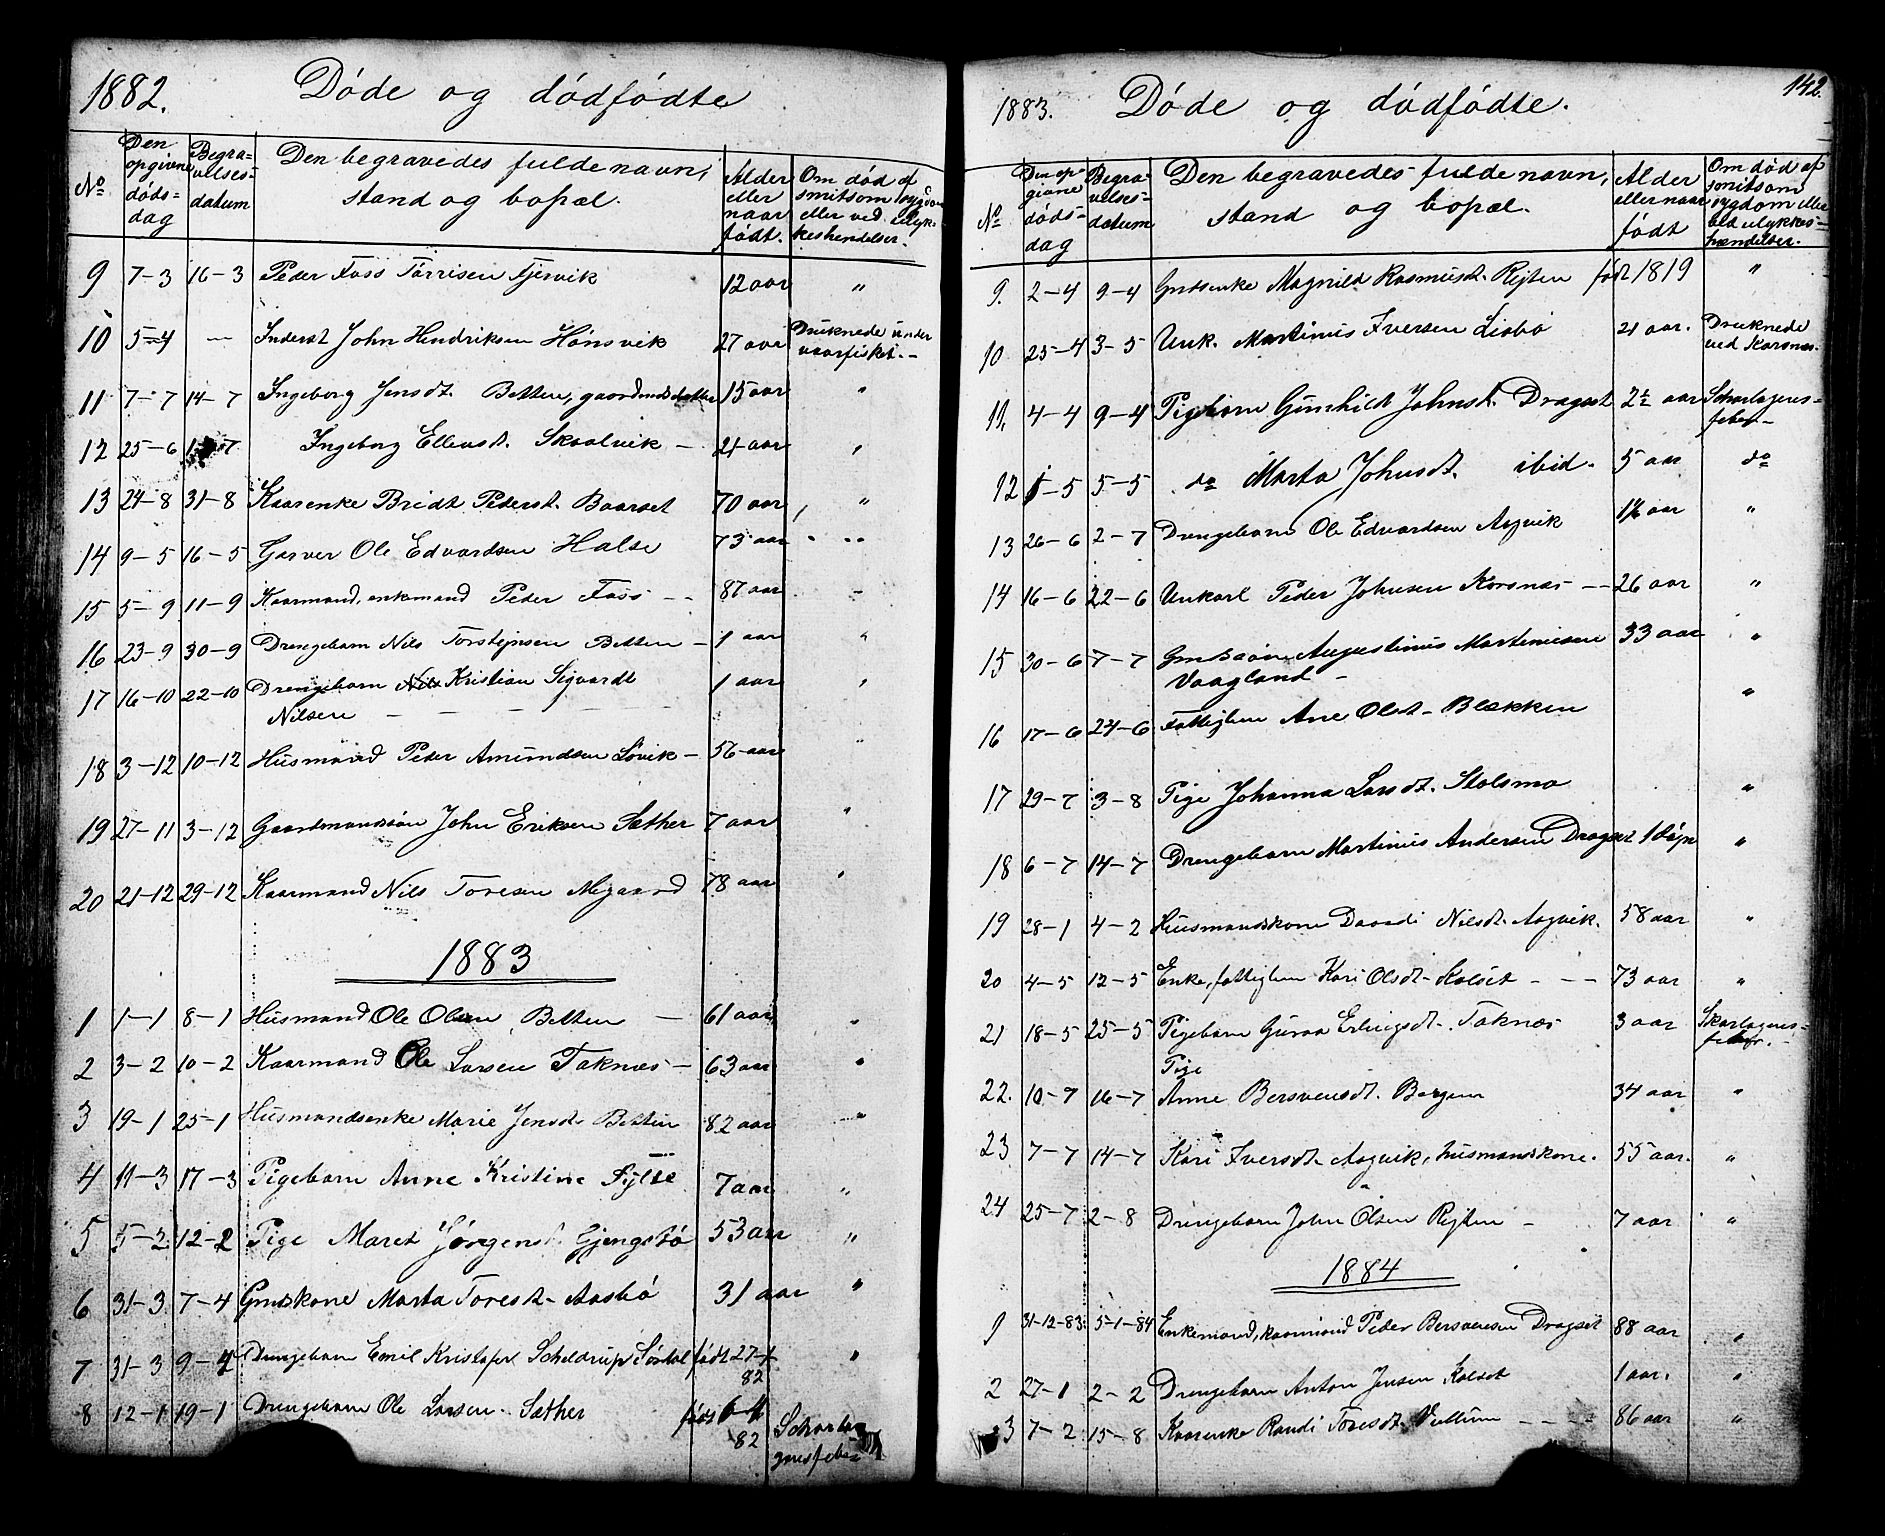 1882. Døde og dødfødte
No Den opgivne døds-dag Begra-velses-datum Den begravedes fulde navn, stand og bopæl. Alder eller naar født. Om død af smitsom sygdom eller ved ulyk-keshendelser.
9 7-3 16-3 Peder Foss Tørrisen Fjervik 12 aar "
10 5-4 — Inderst John Hendriksen Hønsvik 27 aar Druknede under
vaarfisket.-
11 7-7 14-7 Ingeborg Jensdt. Betten, gaardmdsdatter 15 aar "
12 25-6 Ingeborg Ellensdt. Skaalvik - 21 aar "
13 24-8 31-8 Kaarenke Bridt Pedersd. Baarset 70 aar "
14 9-5 16-5 Garver Ole Edvardsen Halse 73 aar "
15 5-9 11-9 Kaarmand, enkemand Peder Foss - - 87 aar -
16 23-9 30-9 Drengebarn Nils Torstejnsen Betten - 1 aar "
17 16-10 22-10 Drengebarn Nils Kristian Sigvardt 1 aar "
Nilsen - - - - -
18 3-12 10-12 Husmand Peder Amundsen Løvik - 56 aar "
19 27-11 3-12 Gaardmandssøn John Eriksen Sæther 7 aar "
20 21-12 29-12 Kaarmand Nils Toresen Møgaard 78 aar "
1883
1 1-1 8-1 Husmand Ole Olsen Betten - 61 aar "
2 3-2 10-2 Kaarmand Ole Larsen Taknæs - 63 aar "
3 19-1 25-1 Husmandsenke Marie Jensdt. Betten 82 aar "
4 11-3 17-3 Pigebarn Anne Kristine Sylte 7 aar "
5 5-2 12-2 Pige Maret Jørgensd. Gjengstø 53 aar "
6 31-3 7-4 Gmdskone Marta Toresdt. Aasbø 31 aar "
7 31-3 9-4 Drengebarn Emil Kristofer Scheldrup født 27-1 "
82
8 12-1 19-1 Drengebarn Ole Larsen Sæther født 6-4 Scharla-
82 gensfeber
1883. Døde og dødfødte. 142.
No Den op-givne døds-dag Begra-velses-datum Den begravedes fulde navn, stand og bopæl. Alder eller naar født Om død af smitsom sygdom eller ved ulykkes-hændelser.
9. 2-4 9-4 Gmdsenke Magnild Rasmusdt. Rejten født 1819 "
10 25-4 3-5 Unk. Martinus Iversen Lisbø 21 aar. Druknede
ved Korsnæs.
11. 4-4 9-4 Pigebarn Gunhild Johnsd. Dragset 2½ aar Scharlagens-
feber-
12 1-5 5-5 do Marta Johnsdt. ibid. 5 aar do
13 26-6 2-7 Drengebarn Ole Edvardsen Aagvik 1½ aar "
14 16-6 22-6 Unkarl Peder Johnsen Korsnæs - - 26 aar "
15 30-6 7-7 Augustinus Martinusen 33 aar "
Vaagland -
16 17-6 24-6 Fattiglem Ane Olsd. Blekken "
17 29-7 3-8 Pige Johanna Larsdt. Stolsmo "
18 6-7 14-7 Drengebarn Martinus Andersen Dragset 1 døgn "
19 28-1 4-2 Husmandskone Daardi Nilsdt. Aagvik. 58 aar "
20 4-5 12-5 Enke, fattiglem Kari Olsdt. Kalset - - - 73 aar "
21 18-5 25-5 Pigebarn Guroa Erlingsdt. Taknæs 3 aar Skarlagens-
feber.-
Pige
22. 10-7 16-7 Anne Bersvensdt. Bergem 34 aar "
23 7-7 14-7 Kari Iversdt. Aagvik, husmandskone. 55 aar. "
24 25-7 2-8 Drengebarn John Olsen Rejten - 7 aar "
1884
1 31-12-83. 5-1-84 Enkemand, kaarmand Peder Bersvensen Dragset 88 aar "
2 27-1 2-2 Drengebarn Anton Jensen Kalset 1 aar. "
3 7-2 15-8 Kaarenke Randi Toresdt. Vullum - - - - 86 aar "